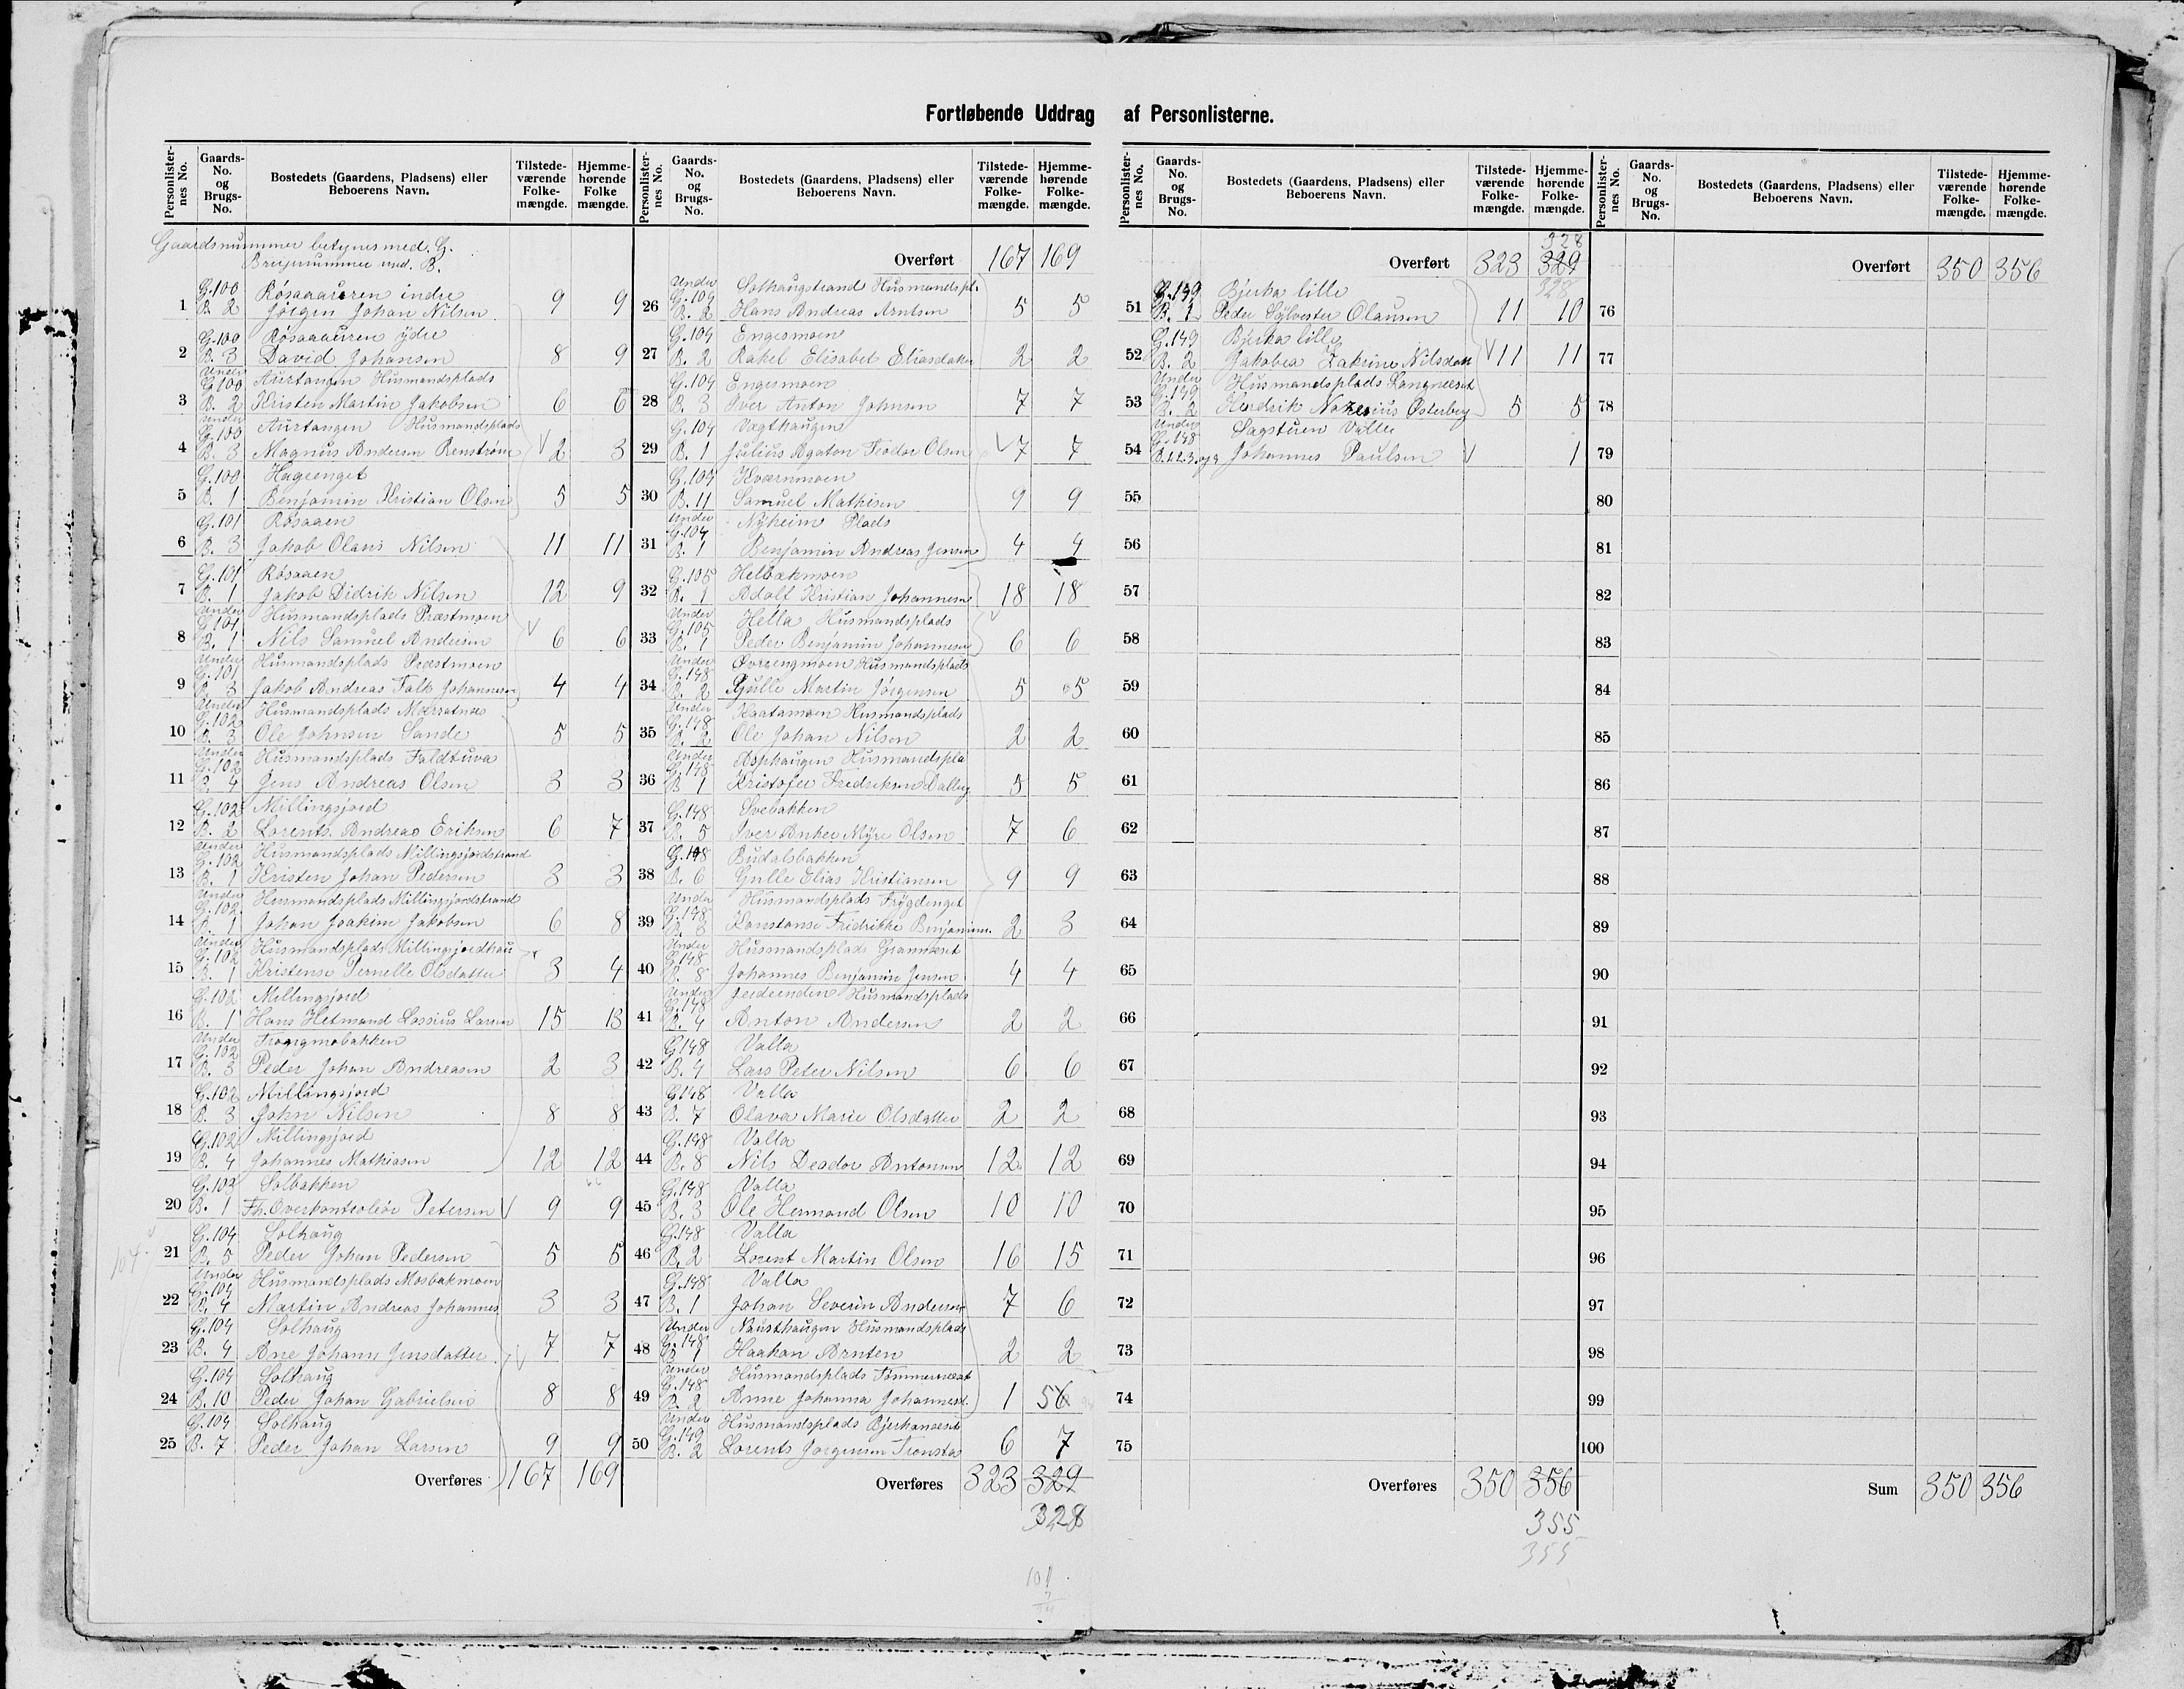 Fortløbende Uddrag af Personlisterne.
Personlister-nes No. Gaards-No. og Brugs-No. Bostedets (Gaardens, Pladsens) eller Beboerens Navn. Tilstede-værende Folke-mængde. Hjemme-hørende Folke mængde.
Gaardsnummer betegnes med G.
Brugsnummer med B.
G.100 Røsaaauren indre
1 B. 2 Jörgen Johan Nilsen 9 9
G.100 Røsaaauren ydre
2 B. 3 David Johansen 8 9
Under Aurtangen Husmandsplads
G.100
3 B. 2 Kristen Martin Jakobsen 6 6
Under Aurtangen Husmandsplads
G.100
4 B. 3 Magnus Andersen Renstrøm 2 3
G.100 Hagenget
5 B. 1 Benjamin Kristian Olsen 5 5
G.101 Røsaaen
6 B. 3 Jakob Olaus Nilsen 11 11
G.101 Røsaaen
7 B. 1 Jakob Didrik Nilsen 12 9
Under Husmandsplads Præstmoen
G.101
8 B. 1 Nils Samuel Andersen 6 6
Under Husmandsplads Præstmoen
G.101
9 B. 3 Jakob Andreas Falk Johannesen 4 4
Under Husmandsplads
G.102
10 B. 3 Ole Johnsen Sande 5 5
Under Husmandsplads Faldtuva
G.102
11 B. 4 Jens Andreas Olsen 3 3
G.102 Millingsjord
12 B. 2 Lorents Andreas Eriksen 6 7
Under Husmandsplads Millingsjordstrand
G.102
13 B. 1 Kristen Johan Pedersen 3 3
Under Husmandsplads Millingsjordstrand
G.102
14 B. 1 Johan Joakim Jakobsen 6 8
Under Husmandsplads Millingsjordhau
G.102
15 B. 1 Kristense Pernelle Olsdatter 3 4
G.102 Millingsjord
16 B. 1 Hans Hetmand Lassius Larsen 15 13
Under Trongmobakken
G.102
17 B. 3 Peder Johan Andreasen 2 3
G.102 Millingsjord
18 B. 3 John Nilsen 8 8
G.102 Millingsjord
19 B. 4 Johannes Mathiasen 12 12
G.103 Solbakken
20 B. 1 Fh. Overkontrolör Petersen 9 9
G.104 Solhaug
21 B. 5 Peder Johan Pedersen 5 5
Under Husmandsplads Mosbakmoen
G.104
22 B. 4 Martin Andreas Johannes 3 3
G.104 Solhaug
23 B. 4 Ane Johanne Jensdatter 7 7
G.104 Solhaug
24 B. 10 Peder Johan Gabrielsen 8 8
G.104 Solhaug
25 B. 7 Peder Johan Larsen 9 9
Overføres 167 169
104
Personlister-nes No. Gaards-No. og Brugs-No. Bostedets (Gaardens, Pladsens) eller Beboerens Navn. Tilstede-værende Folke-mængde. Hjemme-hørende Folke-mængde.
Overført 167 169
Under Solhaugstrand Husmandspl.
G.104
26 B. 2 Hans Andreas Arntsen 5 5
G.104 Engesmoen
27 B. 2 Rakel Elisabet Eliasdatter 2 2
G.104 Engesmoen
28 B. 3 Iver Anton Johnsen 7 7
G.104 Vagthaugen
29 B. 1 Julius Agaton Teodor Olsen 7 7
G.104 Kværnmoen
30 B. 11 Samuel Mathisen 9 9
Under Nyheim Plads
G.104
31 B. 1 Benjamin Andreas Jensen 4 4
G.105 Helbakmoen
32 B. 1 Adolf Kristian Johannesen 18 18
Under Hella Husmandsplads
G.105
33 B. 1 Peder Benjamin Johannesen 6 6
Under Øvrengmoen Husmandsplads
G.148
34 B. 2 Gulle Martin Jörgensen 5 5
Under Haatamoen Husmandsplads
G.148
35 B. 2 Ole Johan Nilsen 2 2
Under Asphaugen Husmandspla
G.148
36 B 1 Kristofer Fredriksen Dalberg 5 5
G.148 Svebakken
37 B. 5 Iver Anker Myre Olsen 7 6
G.148 Budalsbakken
38 B. 6 Gulle Elias Kristiansen 9 9
Under Husmandsplads Trygdenget
G.148
39 B. 3 Konstanse Fredrikke Benjamins. 2 3
Under Husmandsplads Granneset
G.148
40 B. 8 Johannes Benjamin Jensen 4 4
Under Husmandsplads
G.148
41 B. 4 Anton Andersen 2 2
G.148 Valla
42 B. 4 Lars Peter Nilsen 6 6
G.148 Valla
43 B. 7 Olava Marie Olsdatter 2 2
G.148 Valla
44 B. 8 Nils Deador Antonsen 12 12
G.148 Valla
45 B. 3 Ole Hermand Olsen 10 10
G.148 Valla
46 B. 2 Lorent Martin Olsen 16 15
G.148 Valla
47 B. 1 Johan Severin Andersen 7 6
Under Nausthaugen Husmandsplads
G.148
48 B 1 Haakon Arntsen 2 2
Under Husmandsplads Tømmerneset
G.148
49 B. 2 Anne Johanna Johannesd. 1 5 6
Under Husmandsplads Bjerkaneset
G.149
50 B. 2 Lorents Jørgensen Tronstad 6 7
Overføres 323 329
328
101
Personlister-nes No. Gaards-No. og Brugs-No. Bostedets (Gaardens, Pladsens) eller Beboerens Navn. Tilstede-værende Folke-mængde. Hjemme-hørende Folke-mængde.
328
Overført 323 329
328
G.149 Bjerka lille
51 B. 1 Peder Sylvester Olausen 11 10
G.149 Bjerka lille
52 B. 2 Jakobea Katrine Nilsdatt 11 11
Under Husmandsplads Langneset
G.149
53 B. 2 Hendrik Østerberg 5 5
Under Sagstuen Valla
G.148
54 B. 1.2.3. og 4 Johannes Paulsen 1
55
56
57
58
59
60
61
62
63
64
65
66
67
68
69
70
71
72
73
74
75
Overføres 350 356
355
355
Personlister-nes No. Gaards-No. og Brugs-No. Bostedets (Gaardens, Pladsens) eller Beboerens Navn. Tilstede-værende Folke-mængde. Hjemme-hørende Folke-mængde.
Overført 350 356
76
77
78
79
80
81
82
83
84
85
86
87
88
89
90
91
92
93
94
95
96
97
98
99
100
Sum 350 356